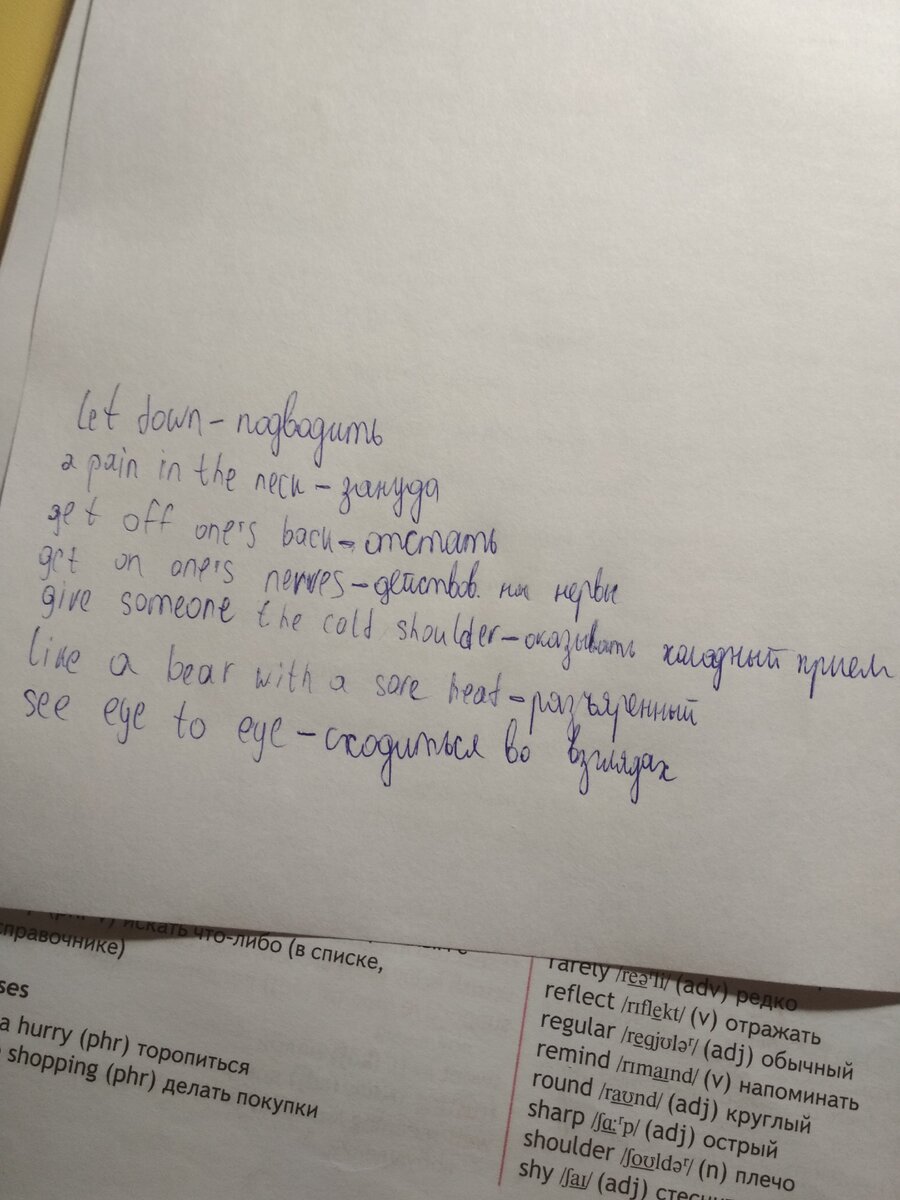 let down – подводить
a pain in the neck – зануда
get off one's back – отстать
get on one's nerves – действов. на нервы
give someone the cold shoulder – оказывать холодный прием
like a bear with a sore heat – разъяренный
see eye to eye – сходиться во взглядах
искать что-либо (в списке,
справочнике)
ses
a hurry (phr) торопиться
shopping (phr) делать покупки
rarely /reəʳli/ (adv) редко
reflect /rɪflekt/ (v) отражать
regular /regjʊləʳ/ (adj) обычный
remind /rɪmaɪnd/ (v) напоминать
round /raʊnd/ (adj) круглый
sharp /ʃɑːʳp/ (adj) острый
shoulder /ʃoʊldəʳ/ (n) плечо
shy /ʃaɪ/ (adj)